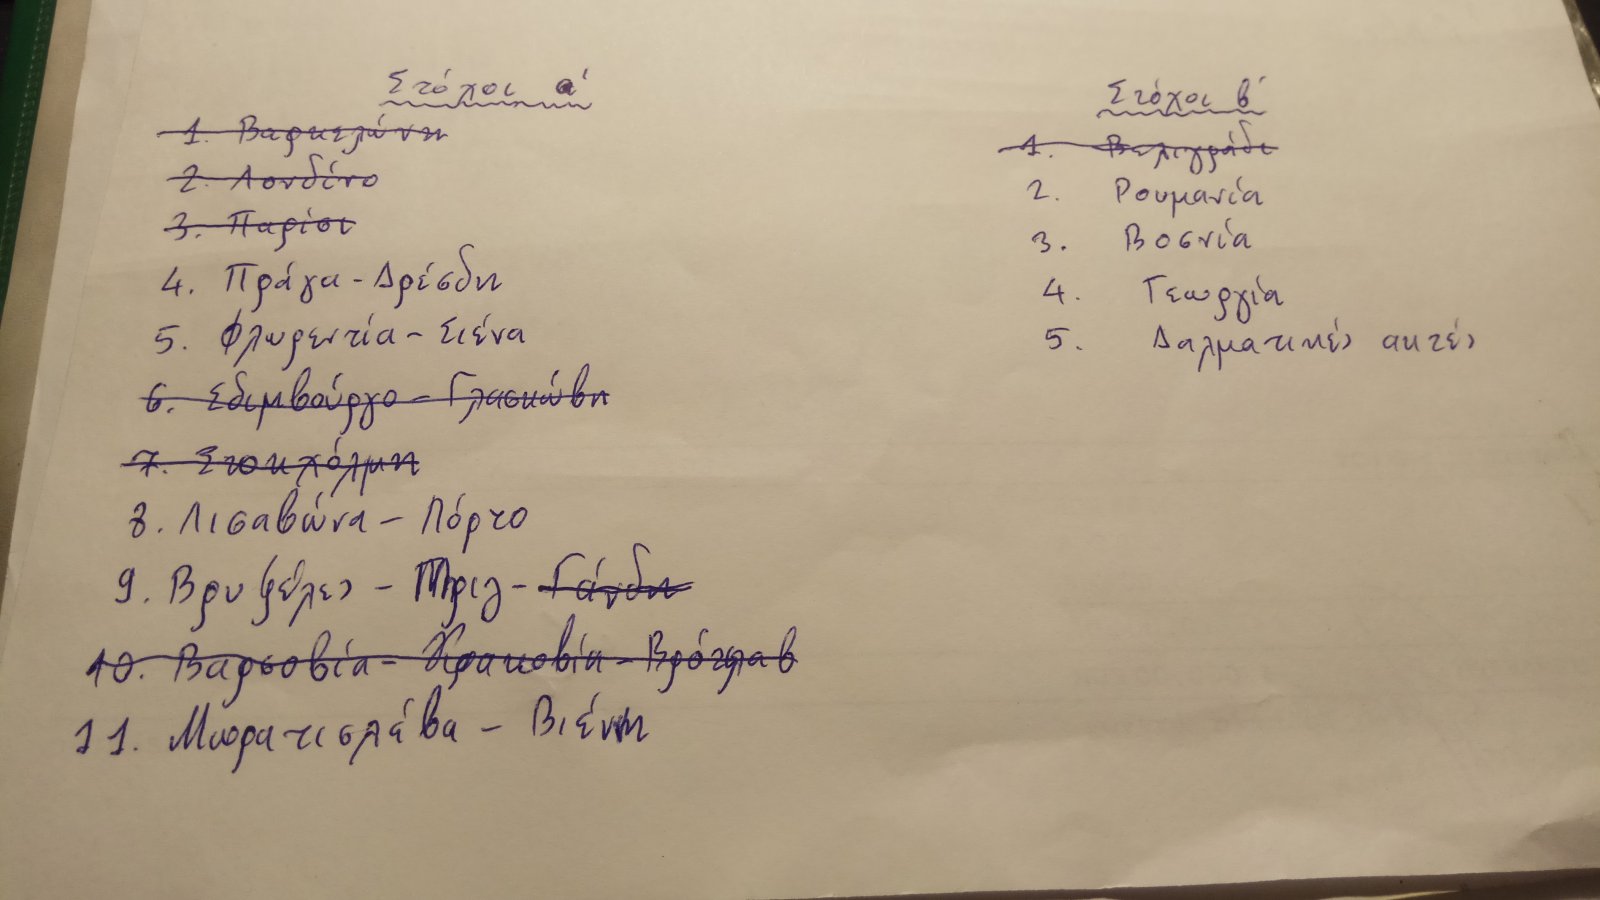 Στόχοι α'
1. Βαρκελώνη
2. Λονδίνο
3. Παρίσι
4. Πράγα - Δρέσδη
5. Φλωρεντία - Σιένα
6. Εδιμβούργο - Γλασκώβη
7. Στοκχόλμη
8. Λισαβώνα - Πόρτο
9. Βρυξέλες - Μπριζ - Γάνδη
10. Βαρσοβία - Κρακοβία - Βρότσλαβ
11. Μπρατισλάβα - Βιέννη
Στόχοι β'
1. Βελιγράδι
2. Ρουμανία
3. Βοσνία
4. Γεωργία
5. Δαλματικές ακτές